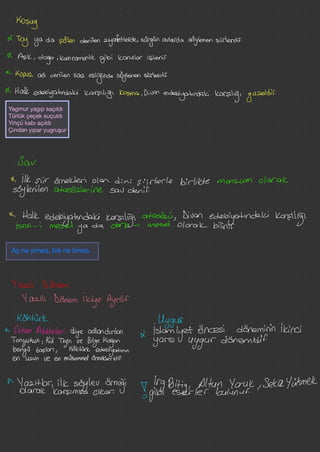 Koşug
Toy ya da şölen denilen ziyafetlerde, sürgün avlarda söylenen şiirlerdir
Aşk, doğa, kahramanlık gibi konular işlenir
Kopuz adı verilen saz eşliğinde söylenen şiirlerdir
Halk edebiyatındaki karşılığı koşma, Divan edebiyatındaki karşılığı gazeldir
Yagmur yagıp saçıldı
Türlük çeçek suçuldı
Yinçü kabı açıldı
Çından yıpar yugruşur
Sav
İlk şiir örnekleri olan dini şiirlerle birlikte manzum olarak
söylenilen atasözlerine sav denir
Halk edebiyatındaki karşılığı atasözü, Divan edebiyatındaki karşılığı
irsal-i mesel ya da darb-ı mesel olarak bilinir
Aç ne yimes, tok ne times
Yazılı Dönem
Yazılı Dönem İkiye Ayrılır
Köktürk
Orhun Abideleri diye adlandırılan
Tonyukuk, Kül Tigin ve Bilge Kağan
bengü taşları, Köktürk edebiyatının
en uzun ve en mükemmel örnekleridir
Yazıtlar, ilk söylev örneği
olarak karşımıza çıkar.
Uygur
İslamiyet öncesi döneminin ikinci
yarısı Uygur dönemidir
Irg Bitig, Altun Yaruk, Sekiz Yükmek
gibi eserler bulunur.